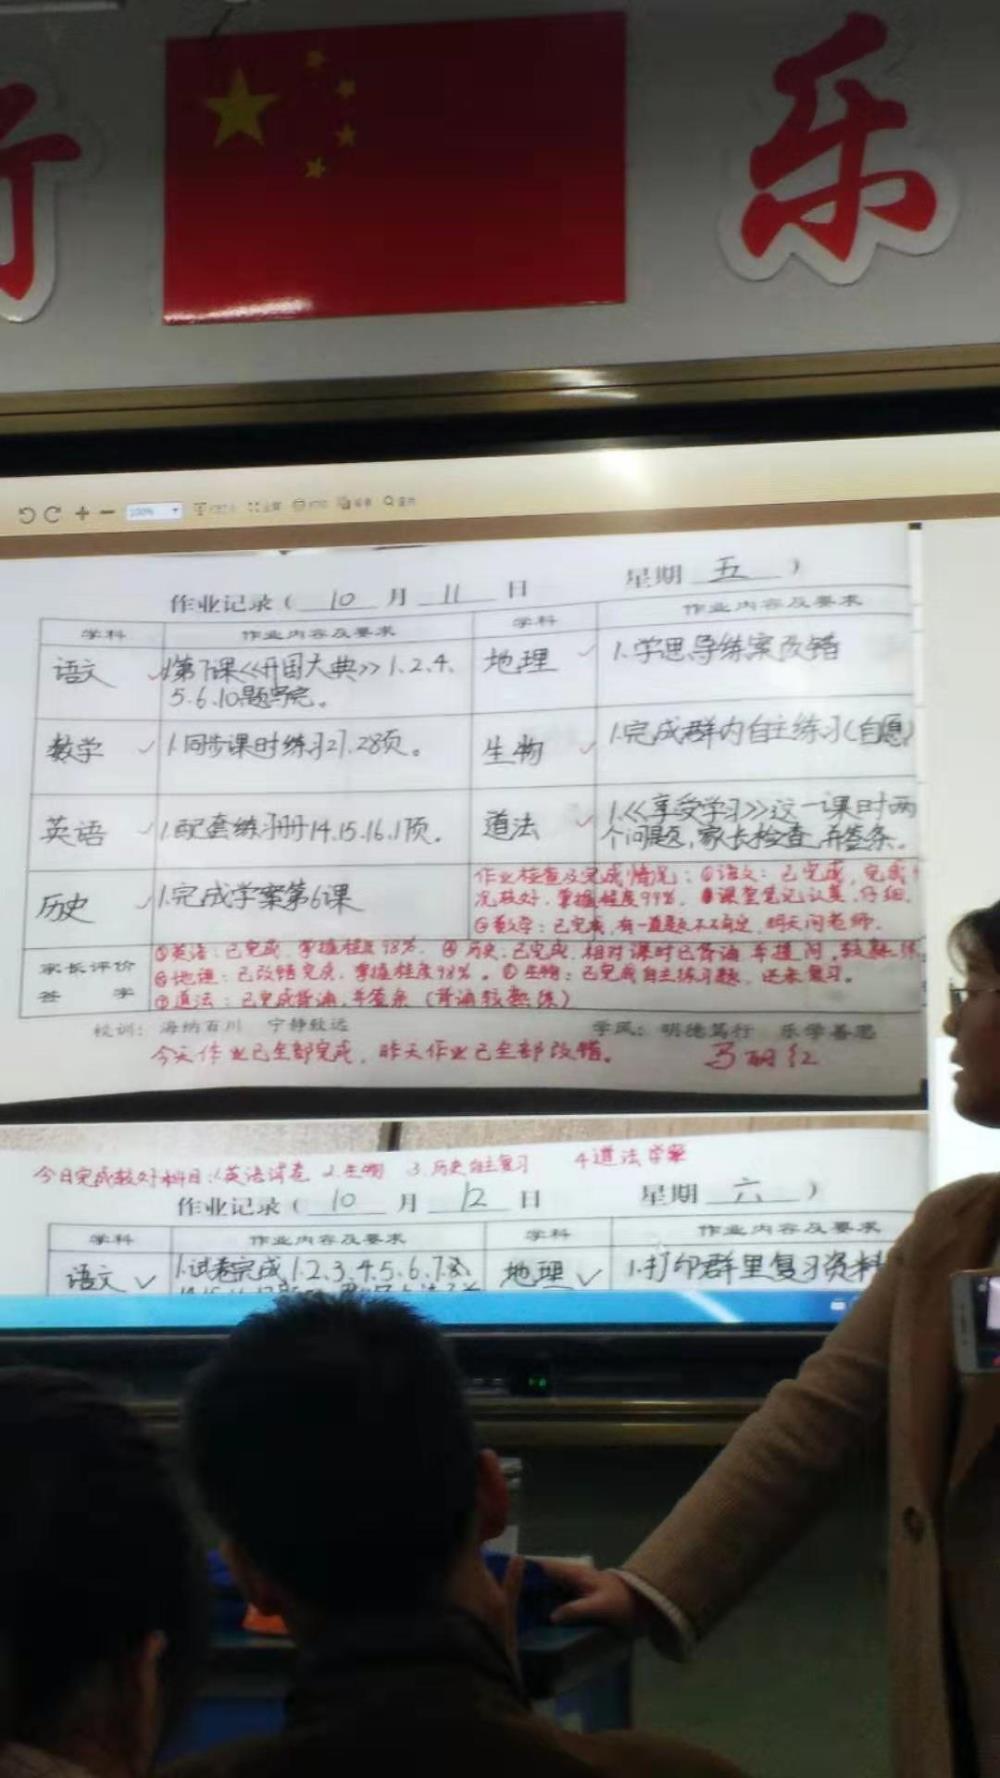 行
乐
100%
作业记录( 10 月 11 日 星期 五 )
学科 作业内容及要求 学科 作业内容及要求
语文 1.第7课《开国大典》1.2.4. 地理 1.学思导练案改错
5.6.10题写完。
数学 1.同步课时练习27.28页。 生物 1.完成群内自主练习(自愿)
英语 1.配套练习册14.15.16.17页. 道法 1.《享受学习》这一课时两
个问题,家长检查,并签条。
历史 1.完成学案第6课
作业检查及完成情况:①语文:已完成,完成
况较好,掌握程度99%,课堂笔记认真,仔细.
②数学:已完成,有一道题不确定,明天问老师.
家长评价
签字
③英语:已完成,掌握程度98%. ④历史:已完成,相对课时已背诵并提问,较熟练
⑤地理:已改错完成,掌握程度98%。⑥生物:已完成自主练习题,还未复习。
⑦道法:已完成背诵,并签条(背诵较熟练)
校训:海纳百川 宁静致远 学风:明德笃行 乐学善思
今天作业已全部完成,昨天作业已全部改错。 马丽红
今日完成较好科目:1.英语试卷 2.生物 3.历史自主复习 4.道法学案
作业记录( 10 月 12 日 星期 六 )
学科 作业内容及要求 学科 作业内容及要求
语文 1.试卷完成1.2.3.4.5.6.7.8. 地理 1.打印群里复习资料